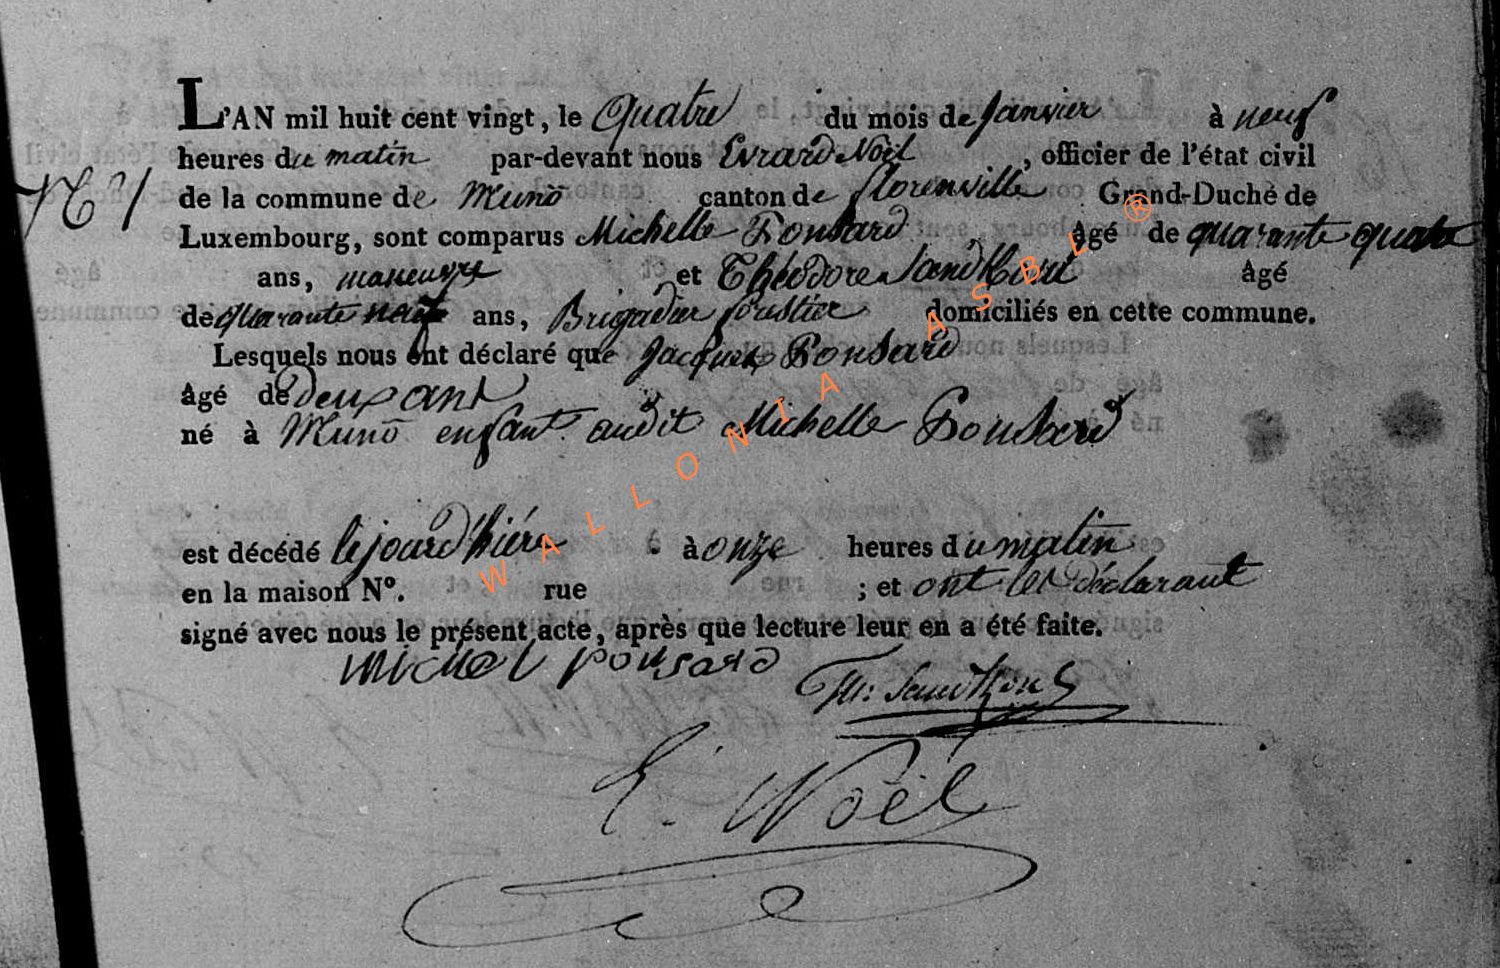 L'AN mil huit cent vingt, le Quatre du mois de Janvier à neuf
heures du matin par-devant nous Evrard Noël, officier de l'état civil
de la commune de Muno canton de florenville Grand-Duché de
N° 1
Luxembourg, sont comparus Michelle Ponsard âgé de quarante quatre
ans, maneuvre et Théodore âgé
de quarante neuf ans, Brigadier forestier domiciliés en cette commune.
Lesquels nous ont déclaré que Jacques Ponsard
âgé de Deux ans
né à Muno enfant audit Michelle Ponsard
est décédé le jour d'hiére à onze heures du matin
en la maison N°. rue ; et ont les déclarant
signé avec nous le présent acte, après que lecture leur en a été faite.
Michel ponsard
Th:
E. Noël
WALLONIA ASBL ®